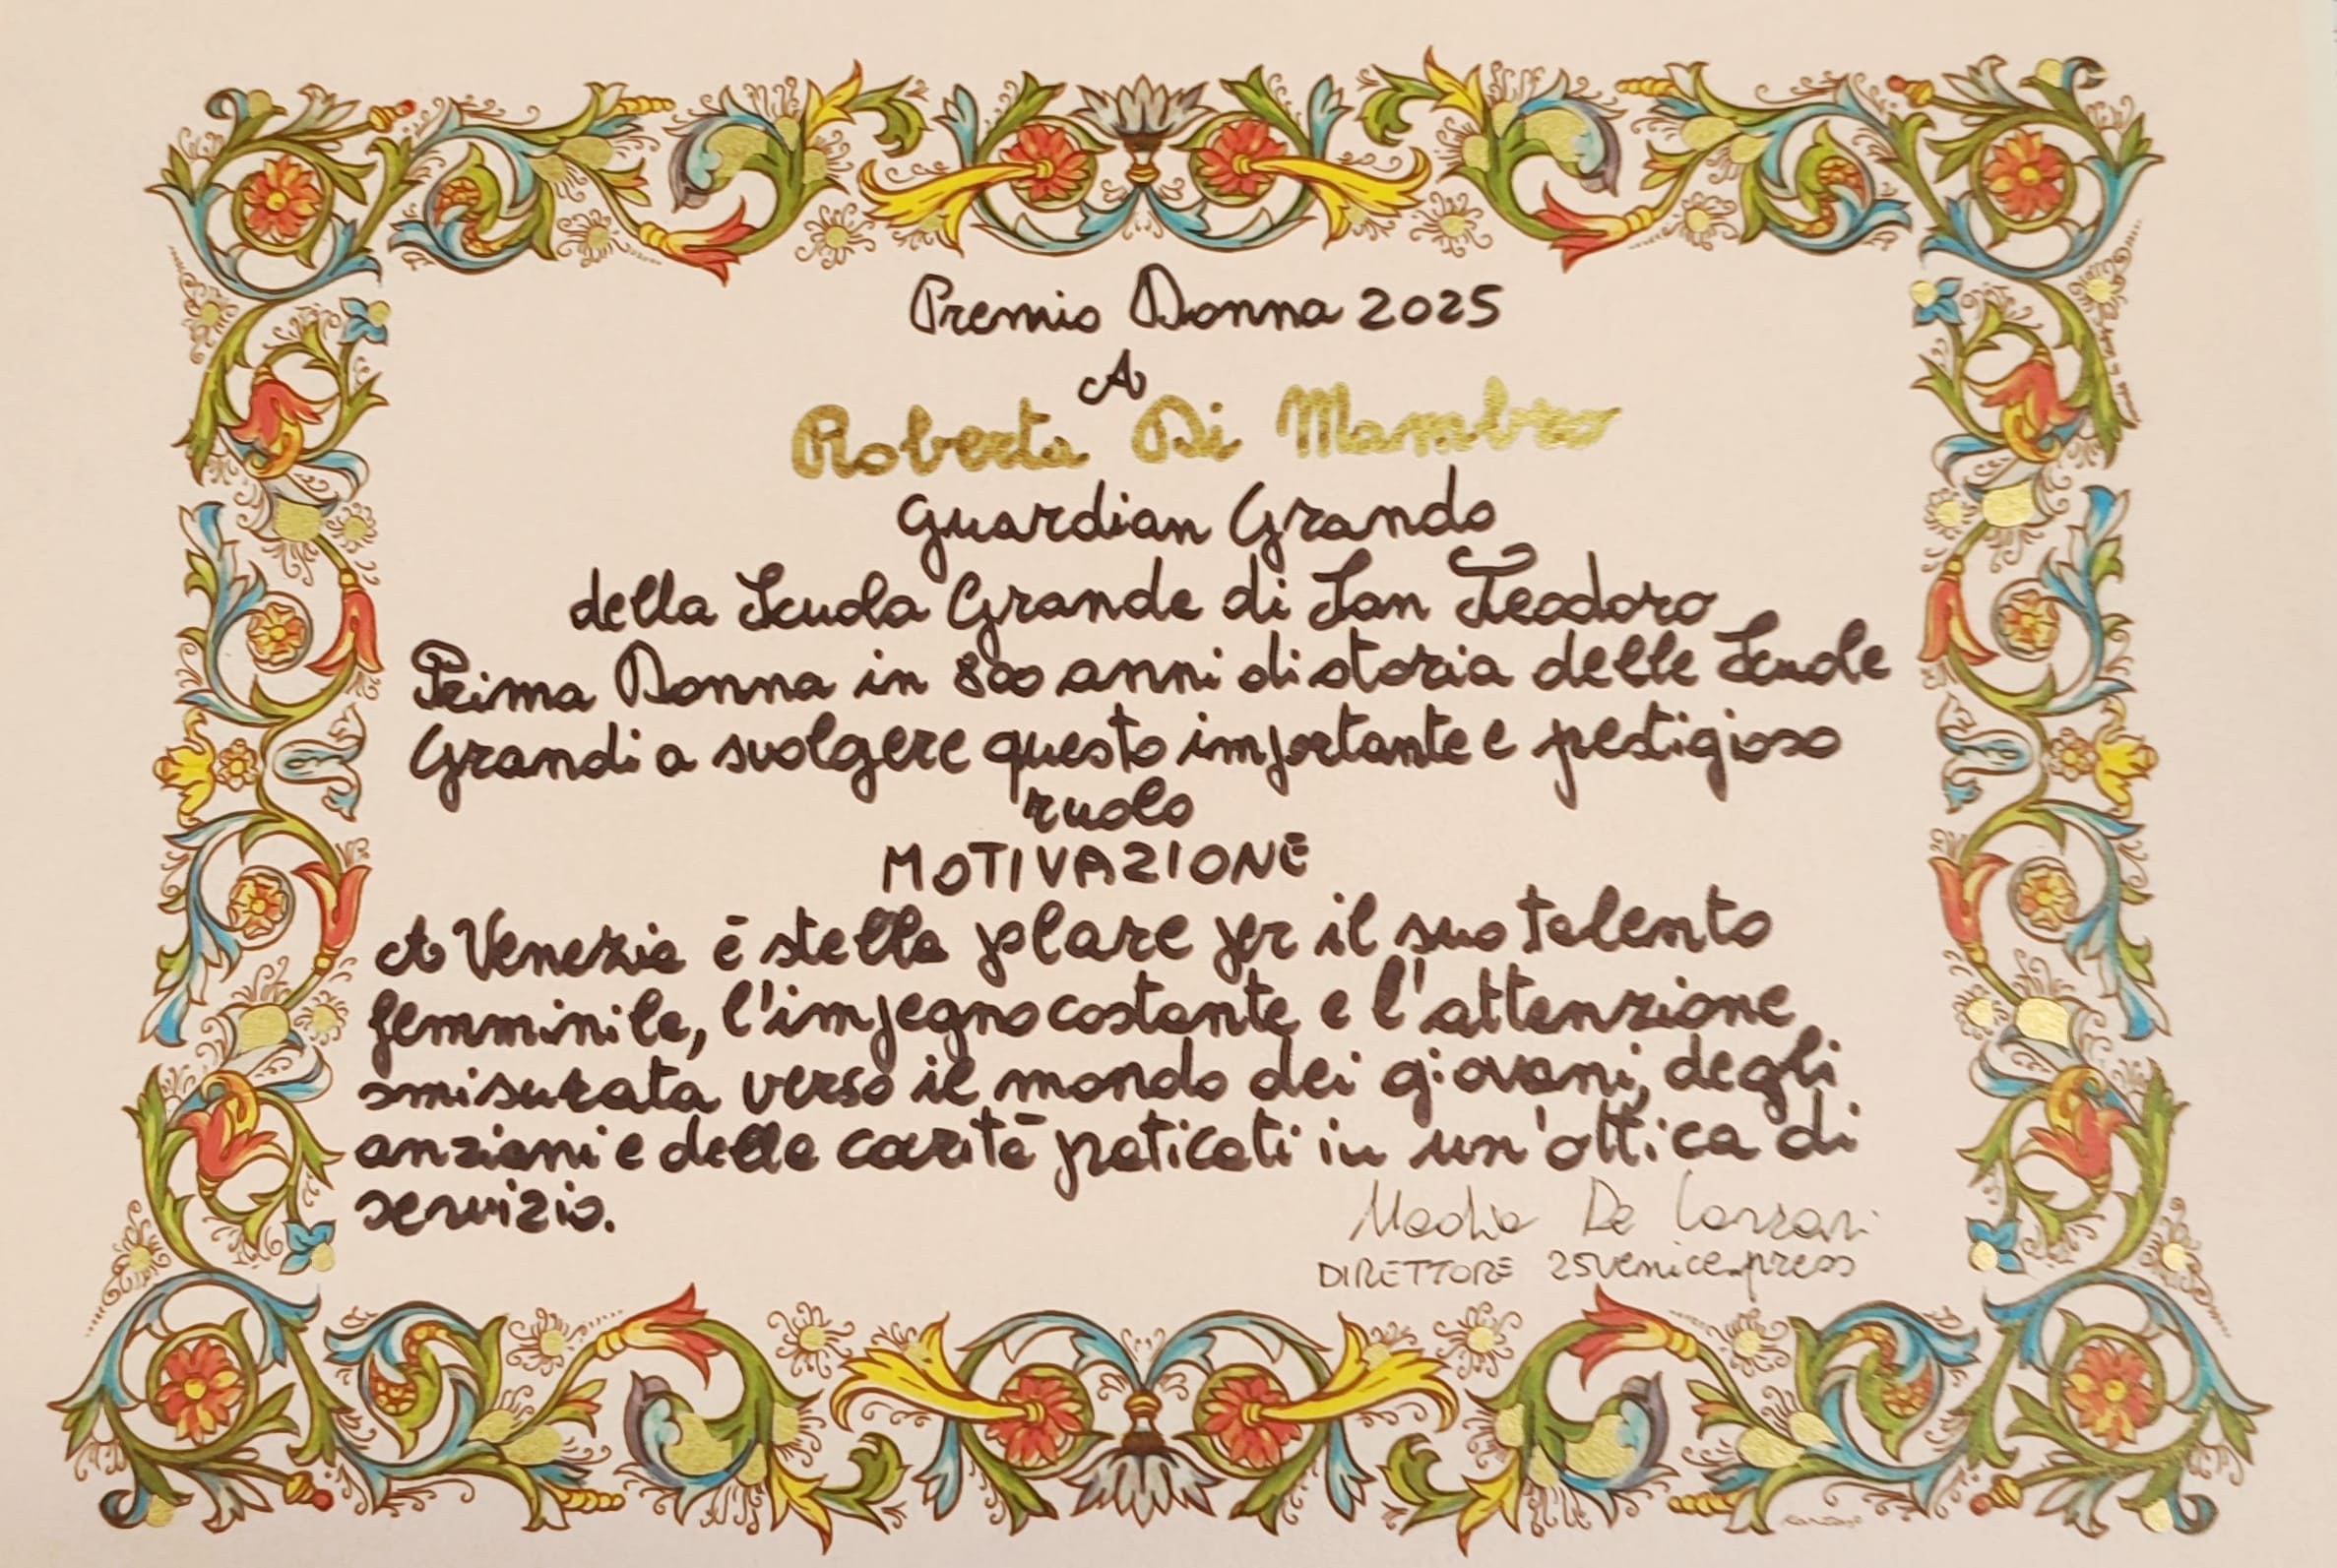 Premio Donna 2025
A
Roberta Di Mambro
Guardian Grando
della Scuola Grande di San Teodoro
Prima Donna in 800 anni di storia delle Scuole
Grandi a svolgere questo importante e pestigioso
ruolo
MOTIVAZIONE
A Venezia è stella polare per il suo talento
femminile, l'impegno costante e l'attenzione
smisurata verso il mondo dei giovani, degli
anziani e della carità praticati in un'ottica di
servizio.
De Lazzari
DIRETTORE 25venice.press